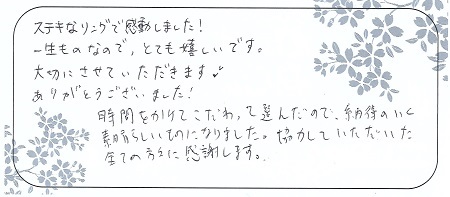 ステキなリングで感動しました！
一生ものなので、とても嬉しいです。
大切にさせていただきます♪
ありがとうございました！
時間をかけてこだわって選んだので、納得のいく
素晴らしいものになりました。協力していただいた
全ての方々に感謝します。